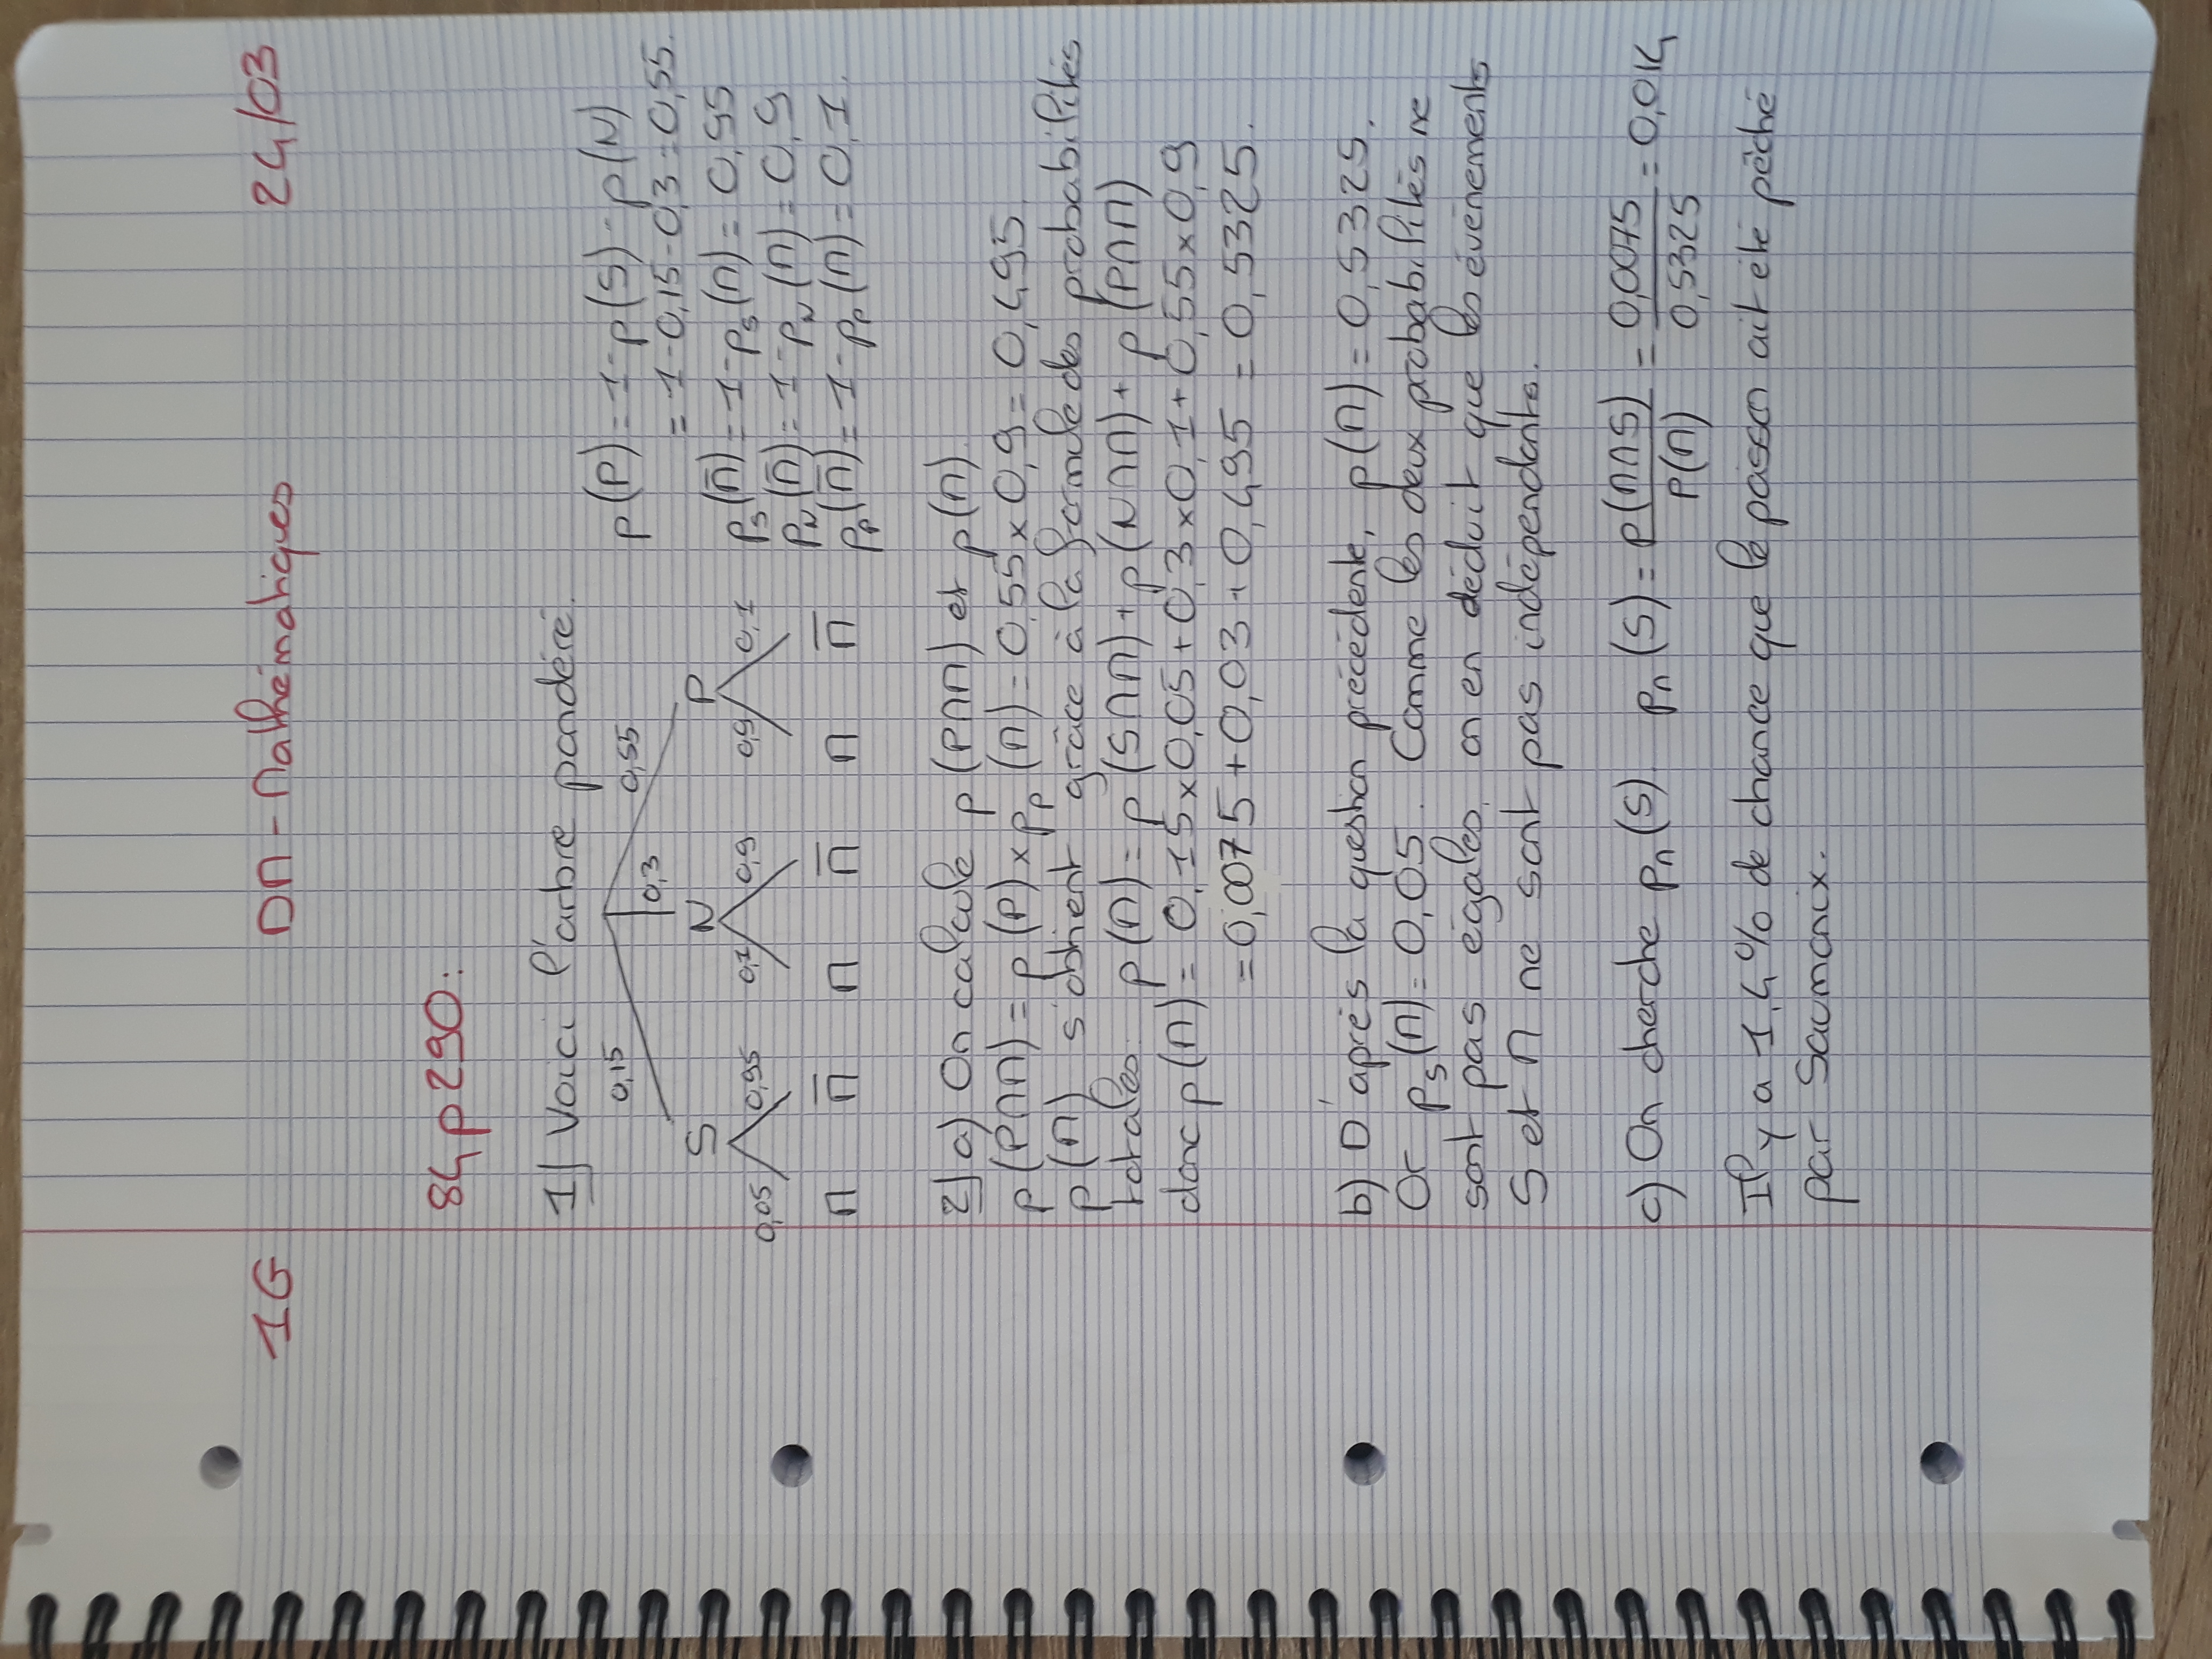 1G DM - Mathématiques 24/03
84 p 290:
1) Voici l'arbre pondéré.
0,15 0,3 0,55
S N P
0,05 0,95 0,1 0,9 0,9 0,1
M M̅ M M̅ M M̅
p(P) = 1 - p(S) - p(N)
= 1 - 0,15 - 0,3 = 0,55.
p_S(M̅) = 1 - p_S(M) = 0,95
p_N(M̅) = 1 - p_N(M) = 0,9
p_P(M̅) = 1 - p_P(M) = 0,1.
2) a) On calcule p(P∩M) et p(M).
p(P∩M) = p(P) × p_P(M) = 0,55 × 0,9 = 0,495
p(M) s'obtient grâce à la formule des probabilités
totales. p(M) = p(S∩M) + p(N∩M) + p(P∩M)
donc p(M) = 0,15 × 0,05 + 0,3 × 0,1 + 0,55 × 0,9
= 0,0075 + 0,03 + 0,495 = 0,5325.
b) D'après la question précédente, p(M) = 0,5325.
Or p_S(M) = 0,05. Comme les deux probabilités ne
sont pas égales, on en déduit que les évènements
S et M ne sont pas indépendants.
c) On cherche p_M(S). p_M(S) = p(M∩S)/p(M) = 0,0075/0,5325 = 0,014
Il y a 1,4% de chance que le poisson ait été pêché
par Saumonix.